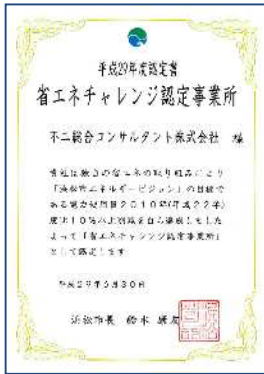 平成29年度認定書
省エネチャレンジ認定事業所
不二総合コンサルタント株式会社 様
貴社は独自の省エネの取り組みにより
「浜松市エネルギービジョン」の目標で
ある電力使用量2010年(平成22年)
度比10%以上削減を自ら達成しました
よって「省エネチャレンジ認定事業所」
として認定します
平成29年6月30日
浜松市長 鈴木 康友